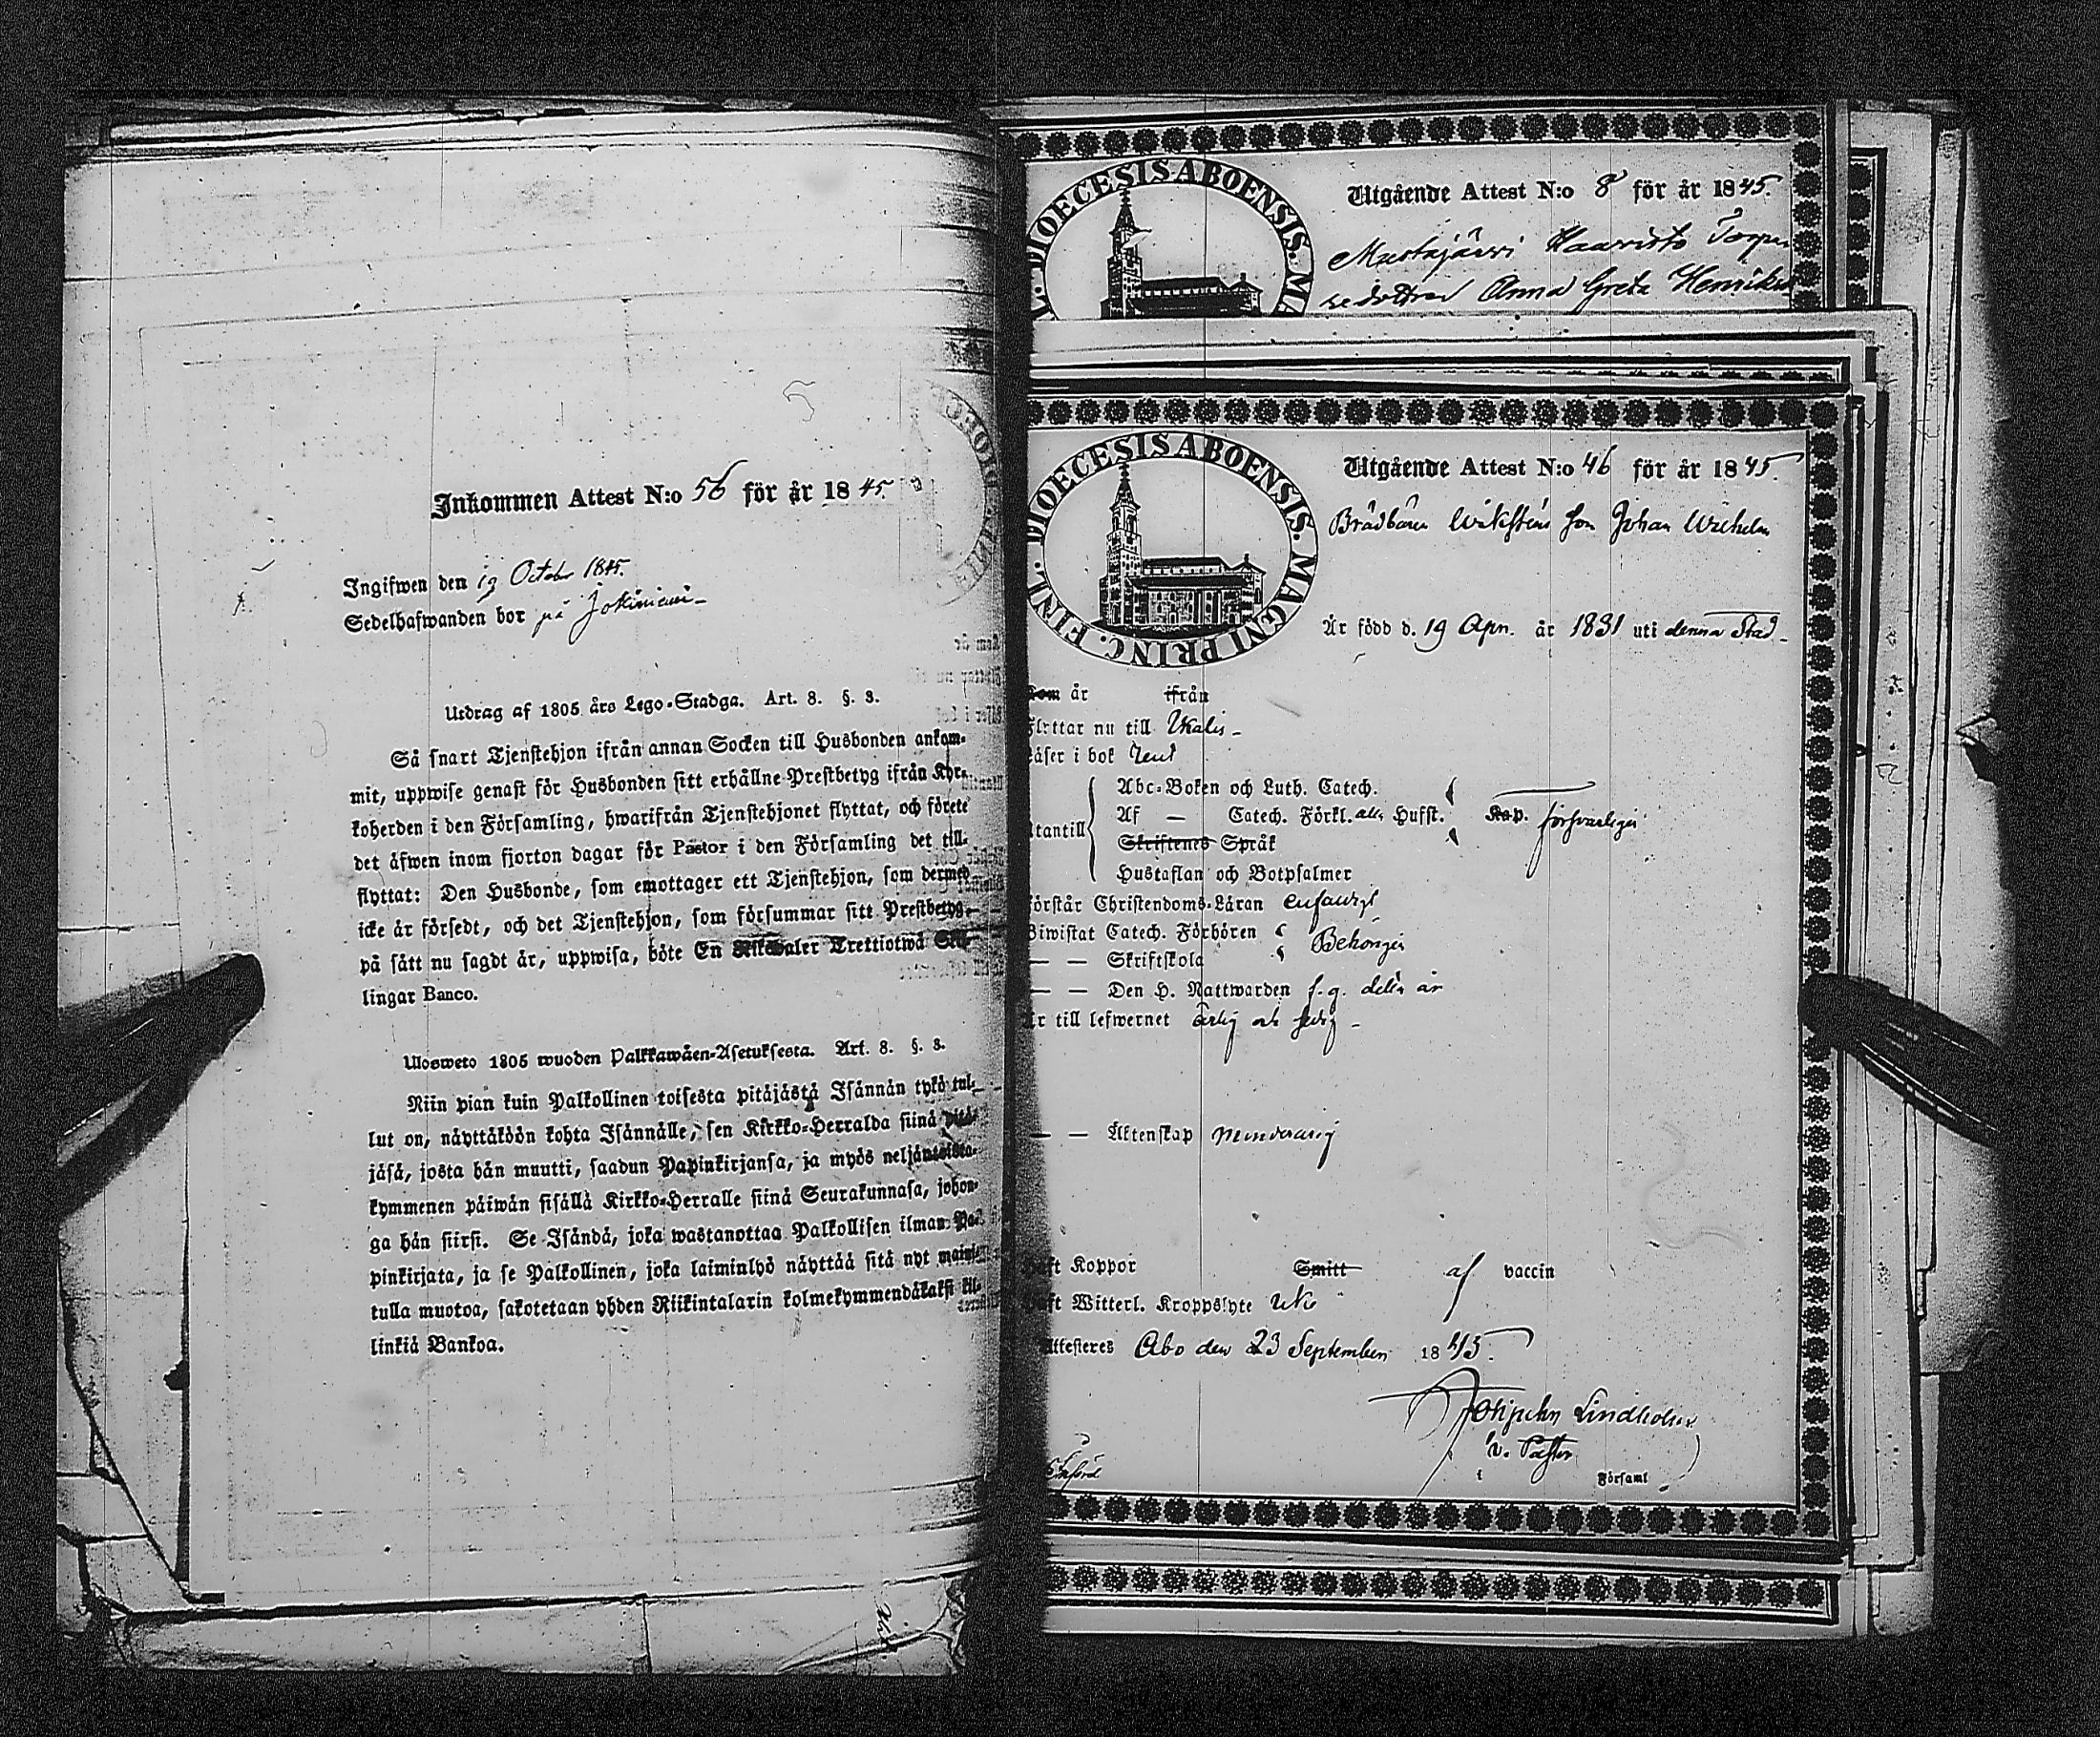 Inkommen Attest N:o 56 för år 1845.
Ingifwen den 19 October 1845.
Sedelhafwanden bor på
Utdrag af 1805 års Lego-Stadga. Art. 8. §. 3.
Så snart Tjenstehjon ifrån annan Socken till Husbonden ankom-
mit, uppwise genast för Husbonden sitt erhållne Prestbetyg ifrån Kyr-
koherden i den Församling, hwarifrån Tjenstehjonet flyttat, och förete
det äfwen inom fjorton dagar för Pastor i den Församling det till-
flyttat: Den Husbonde, som emottager ett Tjenstehjon, som dermed
icke är försedt, och det Tjenstehjon, som försummar sitt Prestbetyg,
på sätt nu sagdt är, uppwisa, böte En Riksdaler Trettiotwå Skil-
lingar Banco.
Ulosweto 1805 wuoden Palkkawäen-Asetuksesta. Art. 8. §. 3.
Niin pian kuin Palkollinen toisesta pitäjästä Isännän tykö tul-
lut on, näyttäköön kohta Isännälle, sen Kirkko-Herralda siinä pitä-
jäsä, josta hän muutti, saadun Papinkirjansa, ja myös neljäntoista-
kymmenen päiwän sisällä Kirkko-Herralle siinä Seurakunnasa, johon-
ga hän siirsi. Se Isändä, joka wastanottaa Palkollisen ilman Pa-
pinkirjata, ja se Palkollinen, joka laiminlyö näyttää sitä nyt mainit-
tulla muotoa, sakotetaan yhden Riikintalarin kolmekymmendäkaksi kil-
linkiä Bankoa.
DIOECESIS ABOENSIS. MA
Utgående Attest N:o 8 för år 1845.
Mustajärvi Haavisto Torpa
Anna Greta Henriks
FINL. DIOECESIS ABOENSIS. MAGNI PRINC.
Utgående Attest N:o 46 för år 1845.
Wiksténs son Johan Wilhelm
Är född d. 19 Apr. år 1831 uti denna Stad
Kom år ifrån
Flyttar nu till Ikalis
Läser i bok rent
Abc-Boken och Luth. Catech.
Af — Catech. Förkl. alla Hufst. Kap. försvarligen
Utantill
Skriftenes Språk
Hustaflan och Botpsalmer
Förstår Christendoms-Läran enfaldigt
Biwistat Catech. Förhören Behörigen
— — Skriftskola
— — Den H. Nattwarden f.g. detta år
Är till lefwernet ärlig och sedig
— — Äktenskap minderårig
Haft Koppor Smitt af vaccin
Haft Witterl. Kroppslyte icke
Attesteres Åbo den 23 September 1845.
Lindholm
v. Pastor
i Förſaml
Införd